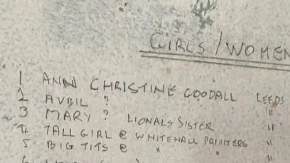 GIRLS/WOMEN
1 ANN CHRISTINE GOODALL LEEDS
2 AVRIL ? "
3 MARY ? LIONALS SISTER "
4 TALL GIRL @ WHITEHALL PRINTERS "
5 BIG TITS @ "